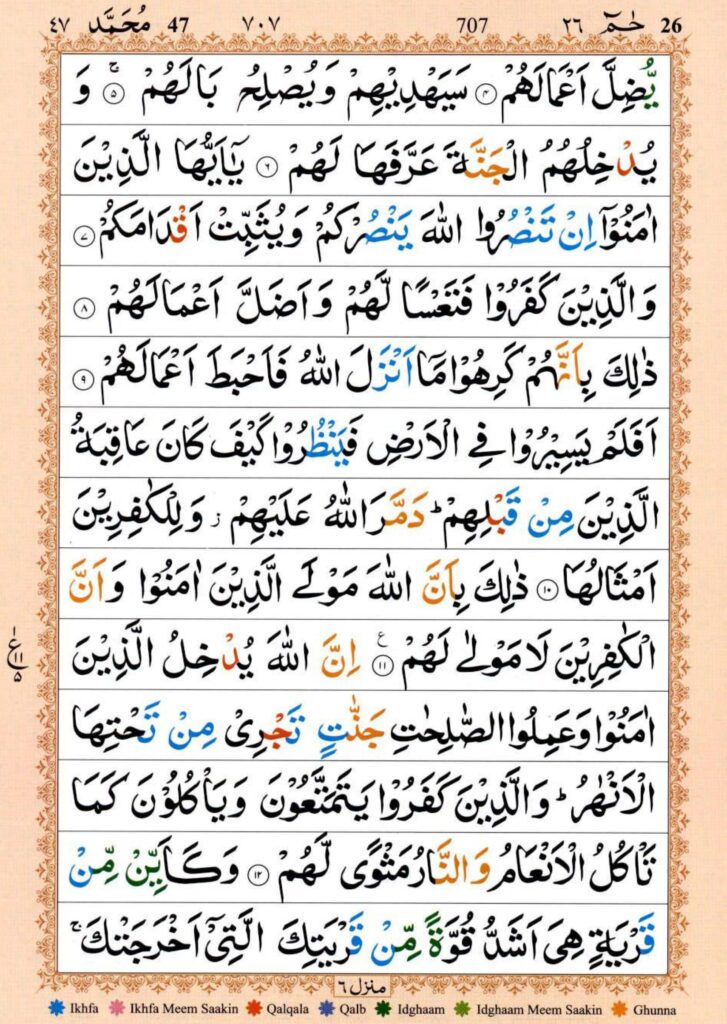 ٤٧ مُحَمَّد 47 ٧٠٧ 707 حٰمٓ ٢٦ 26
يُّضِلَّ اَعْمَالَهُمْ ۴ سَيَهْدِيْهِمْ وَيُصْلِحُ بَالَهُمْ ۚ ۵ وَ
يُدْخِلُهُمُ الْجَنَّةَ عَرَّفَهَا لَهُمْ ۶ يٰۤاَيُّهَا الَّذِيْنَ
اٰمَنُوْۤا اِنْ تَنْصُرُوا اللّٰهَ يَنْصُرْكُمْ وَيُثَبِّتْ اَقْدَامَكُمْ ۷
وَالَّذِيْنَ كَفَرُوْا فَتَعْسًا لَّهُمْ وَاَضَلَّ اَعْمَالَهُمْ ۸
ذٰلِكَ بِاَنَّهُمْ كَرِهُوْا مَاۤ اَنْزَلَ اللّٰهُ فَاَحْبَطَ اَعْمَالَهُمْ ۹
اَفَلَمْ يَسِيْرُوْا فِى الْاَرْضِ فَيَنْظُرُوْا كَيْفَ كَانَ عَاقِبَةُ
الَّذِيْنَ مِنْ قَبْلِهِمْ ؕ دَمَّرَ اللّٰهُ عَلَيْهِمْ ؗ وَلِلْكٰفِرِيْنَ
اَمْثَالُهَا ۱۰ ذٰلِكَ بِاَنَّ اللّٰهَ مَوْلَى الَّذِيْنَ اٰمَنُوْا وَاَنَّ
الْكٰفِرِيْنَ لَا مَوْلٰى لَهُمْ ۱۱ ع اِنَّ اللّٰهَ يُدْخِلُ الَّذِيْنَ
ع ۱ ۱۱ ۵
اٰمَنُوْا وَعَمِلُوا الصّٰلِحٰتِ جَنّٰتٍ تَجْرِىْ مِنْ تَحْتِهَا
الْاَنْهٰرُ ؕ وَالَّذِيْنَ كَفَرُوْا يَتَمَتَّعُوْنَ وَيَاْكُلُوْنَ كَمَا
تَاْكُلُ الْاَنْعَامُ وَالنَّارُ مَثْوًى لَّهُمْ ۱۲ وَكَاَيِّنْ مِّنْ
قَرْيَةٍ هِىَ اَشَدُّ قُوَّةً مِّنْ قَرْيَتِكَ الَّتِىْۤ اَخْرَجَتْكَ ۚ
منزل ٦
Ikhfa Ikhfa Meem Saakin Qalqala Qalb Idghaam Idghaam Meem Saakin Ghunna